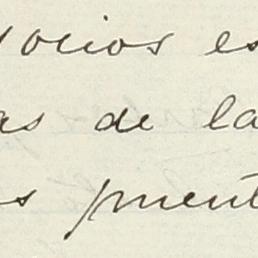 ocios es
as de la
s puent